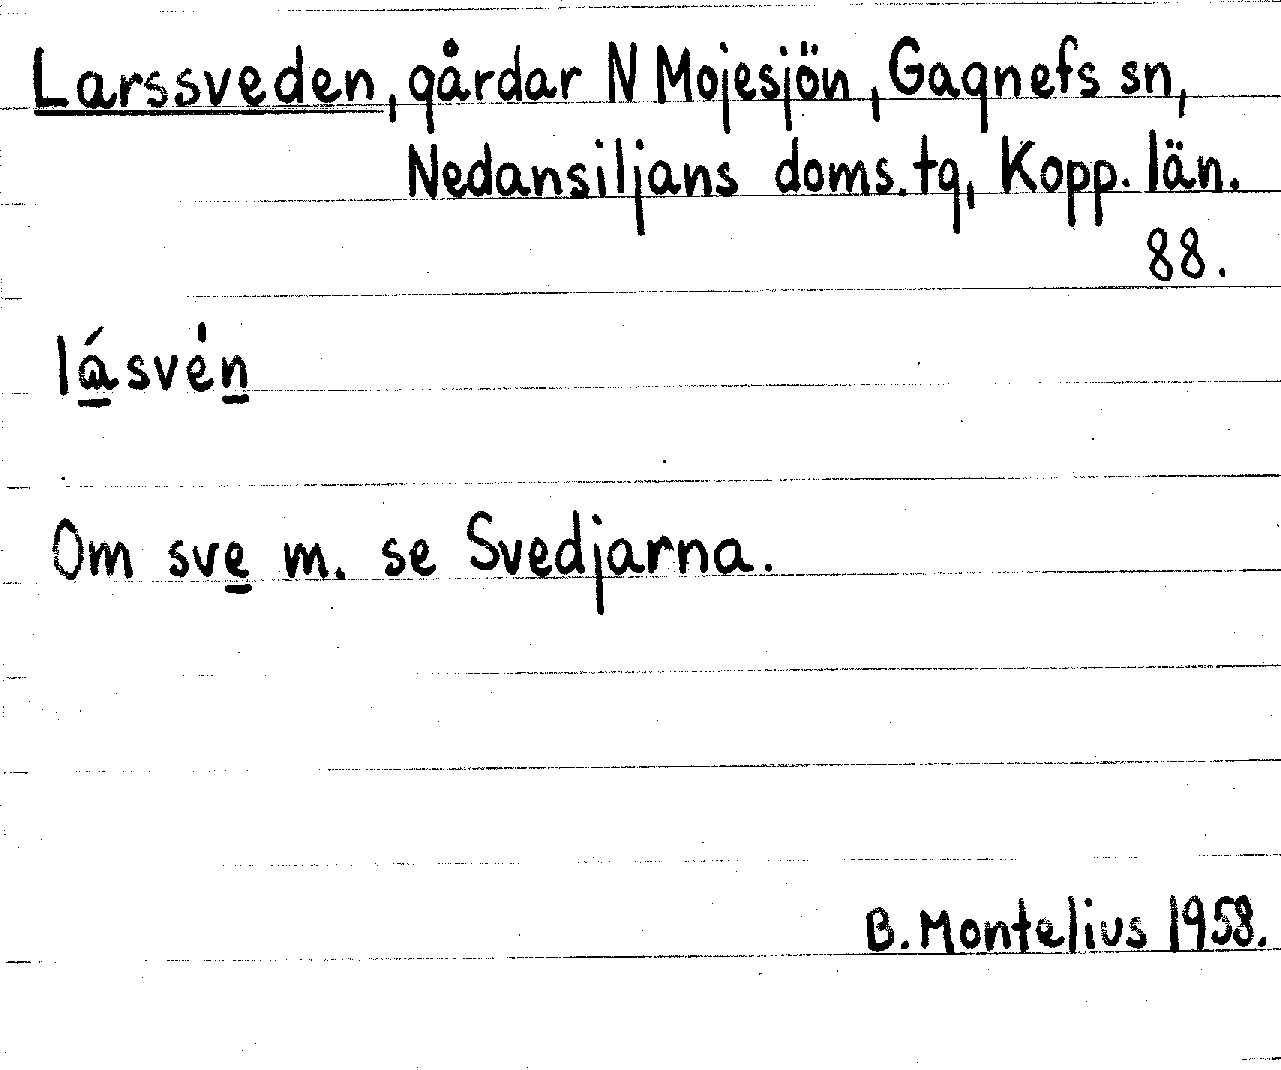 Larssveden, gårdar N Mojesjön, Gagnefs sn,
Nedansiljans doms. tg, Kopp. län.
88.
lásvén
Om sve m. se Svedjarna.
B. Montelius 1958.